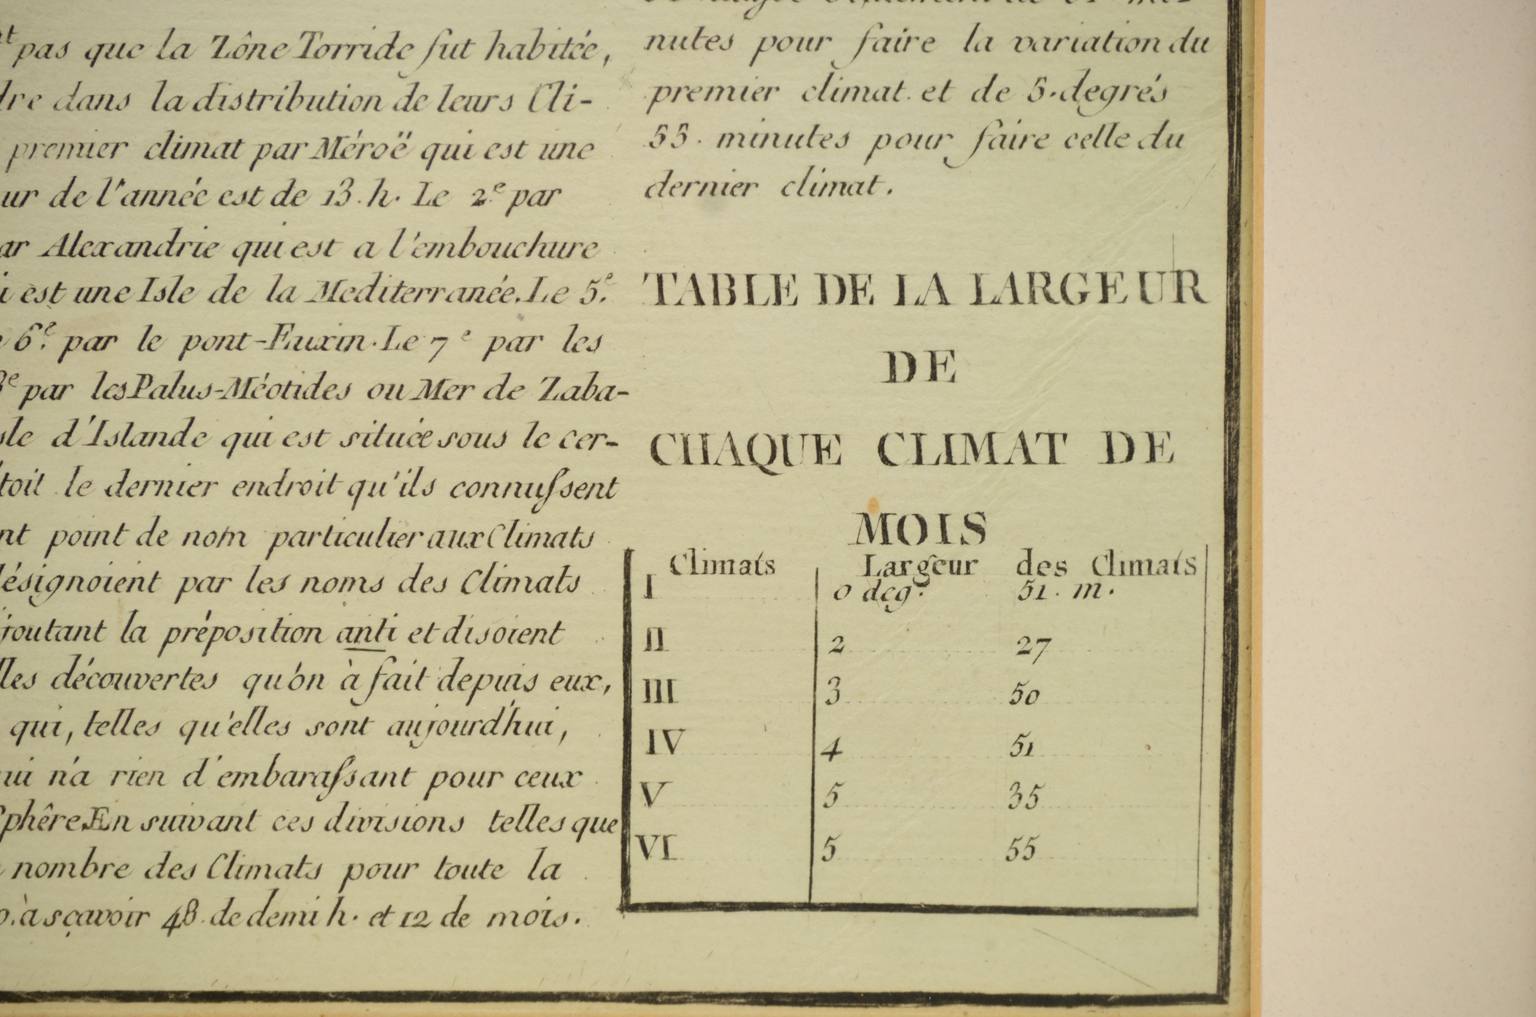 pas que la Zône Torride fut habitée,
dans la distribution de leurs Cli-
premier climat par Méroë qui est une
de l'année est de 13. h. Le 2.e par
Alexandrie qui est a l'embouchure
est une Isle de la Mediterranée. Le 5.e
6.e par le pont-Euxin. Le 7 e par les
par les Palus-Méotides ou Mer de Zaba-
d'Islande qui est située sous le cer-
le dernier endroit qu'ils connussent
point de nom particulier aux Climats
désignoient par les noms des Climats
la préposition anti et disoient
découvertes qu'on à fait depuis eux,
qui, telles qu'elles sont aujourd'hui,
n'a rien d'embarassant pour ceux
Sphêre. En suivant ces divisions telles que
nombre des Climats pour toute la
à sçavoir 48. de demi h. et 12 de mois.
nutes pour faire la variation du
premier climat. et de 5. degrés
55. minutes pour faire celle du
dernier climat.
TABLE DE LA LARGEUR
DE
CHAQUE CLIMAT DE
MOIS
Climats Largeur des Climats
I 0 deg. 51. m.
II 2 27
III 3 50
IV 4 51
V 5 35
VI 5 55